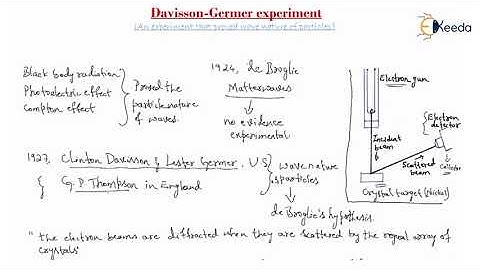 Davisson-Germer experiment
(An experiment that proved wave nature of particles)
Ekeeda
Black body radiation
Photoelectric effect
Compton effect
Proved the
particle nature
of waves.
1924, de Broglie
Matterwaves
no evidence
experimental
Electron gun
Electron
detector
Incident
beam
Scattered
beam
Collector
Crystal target (Nickel)
1927, Clinton Davisson & Lester Germer, U.S
G.P Thompson in England
wave nature
particles
de Broglie's hypothesis.
"the electron beams are diffracted when they are scattered by the repeal array of
crystals"